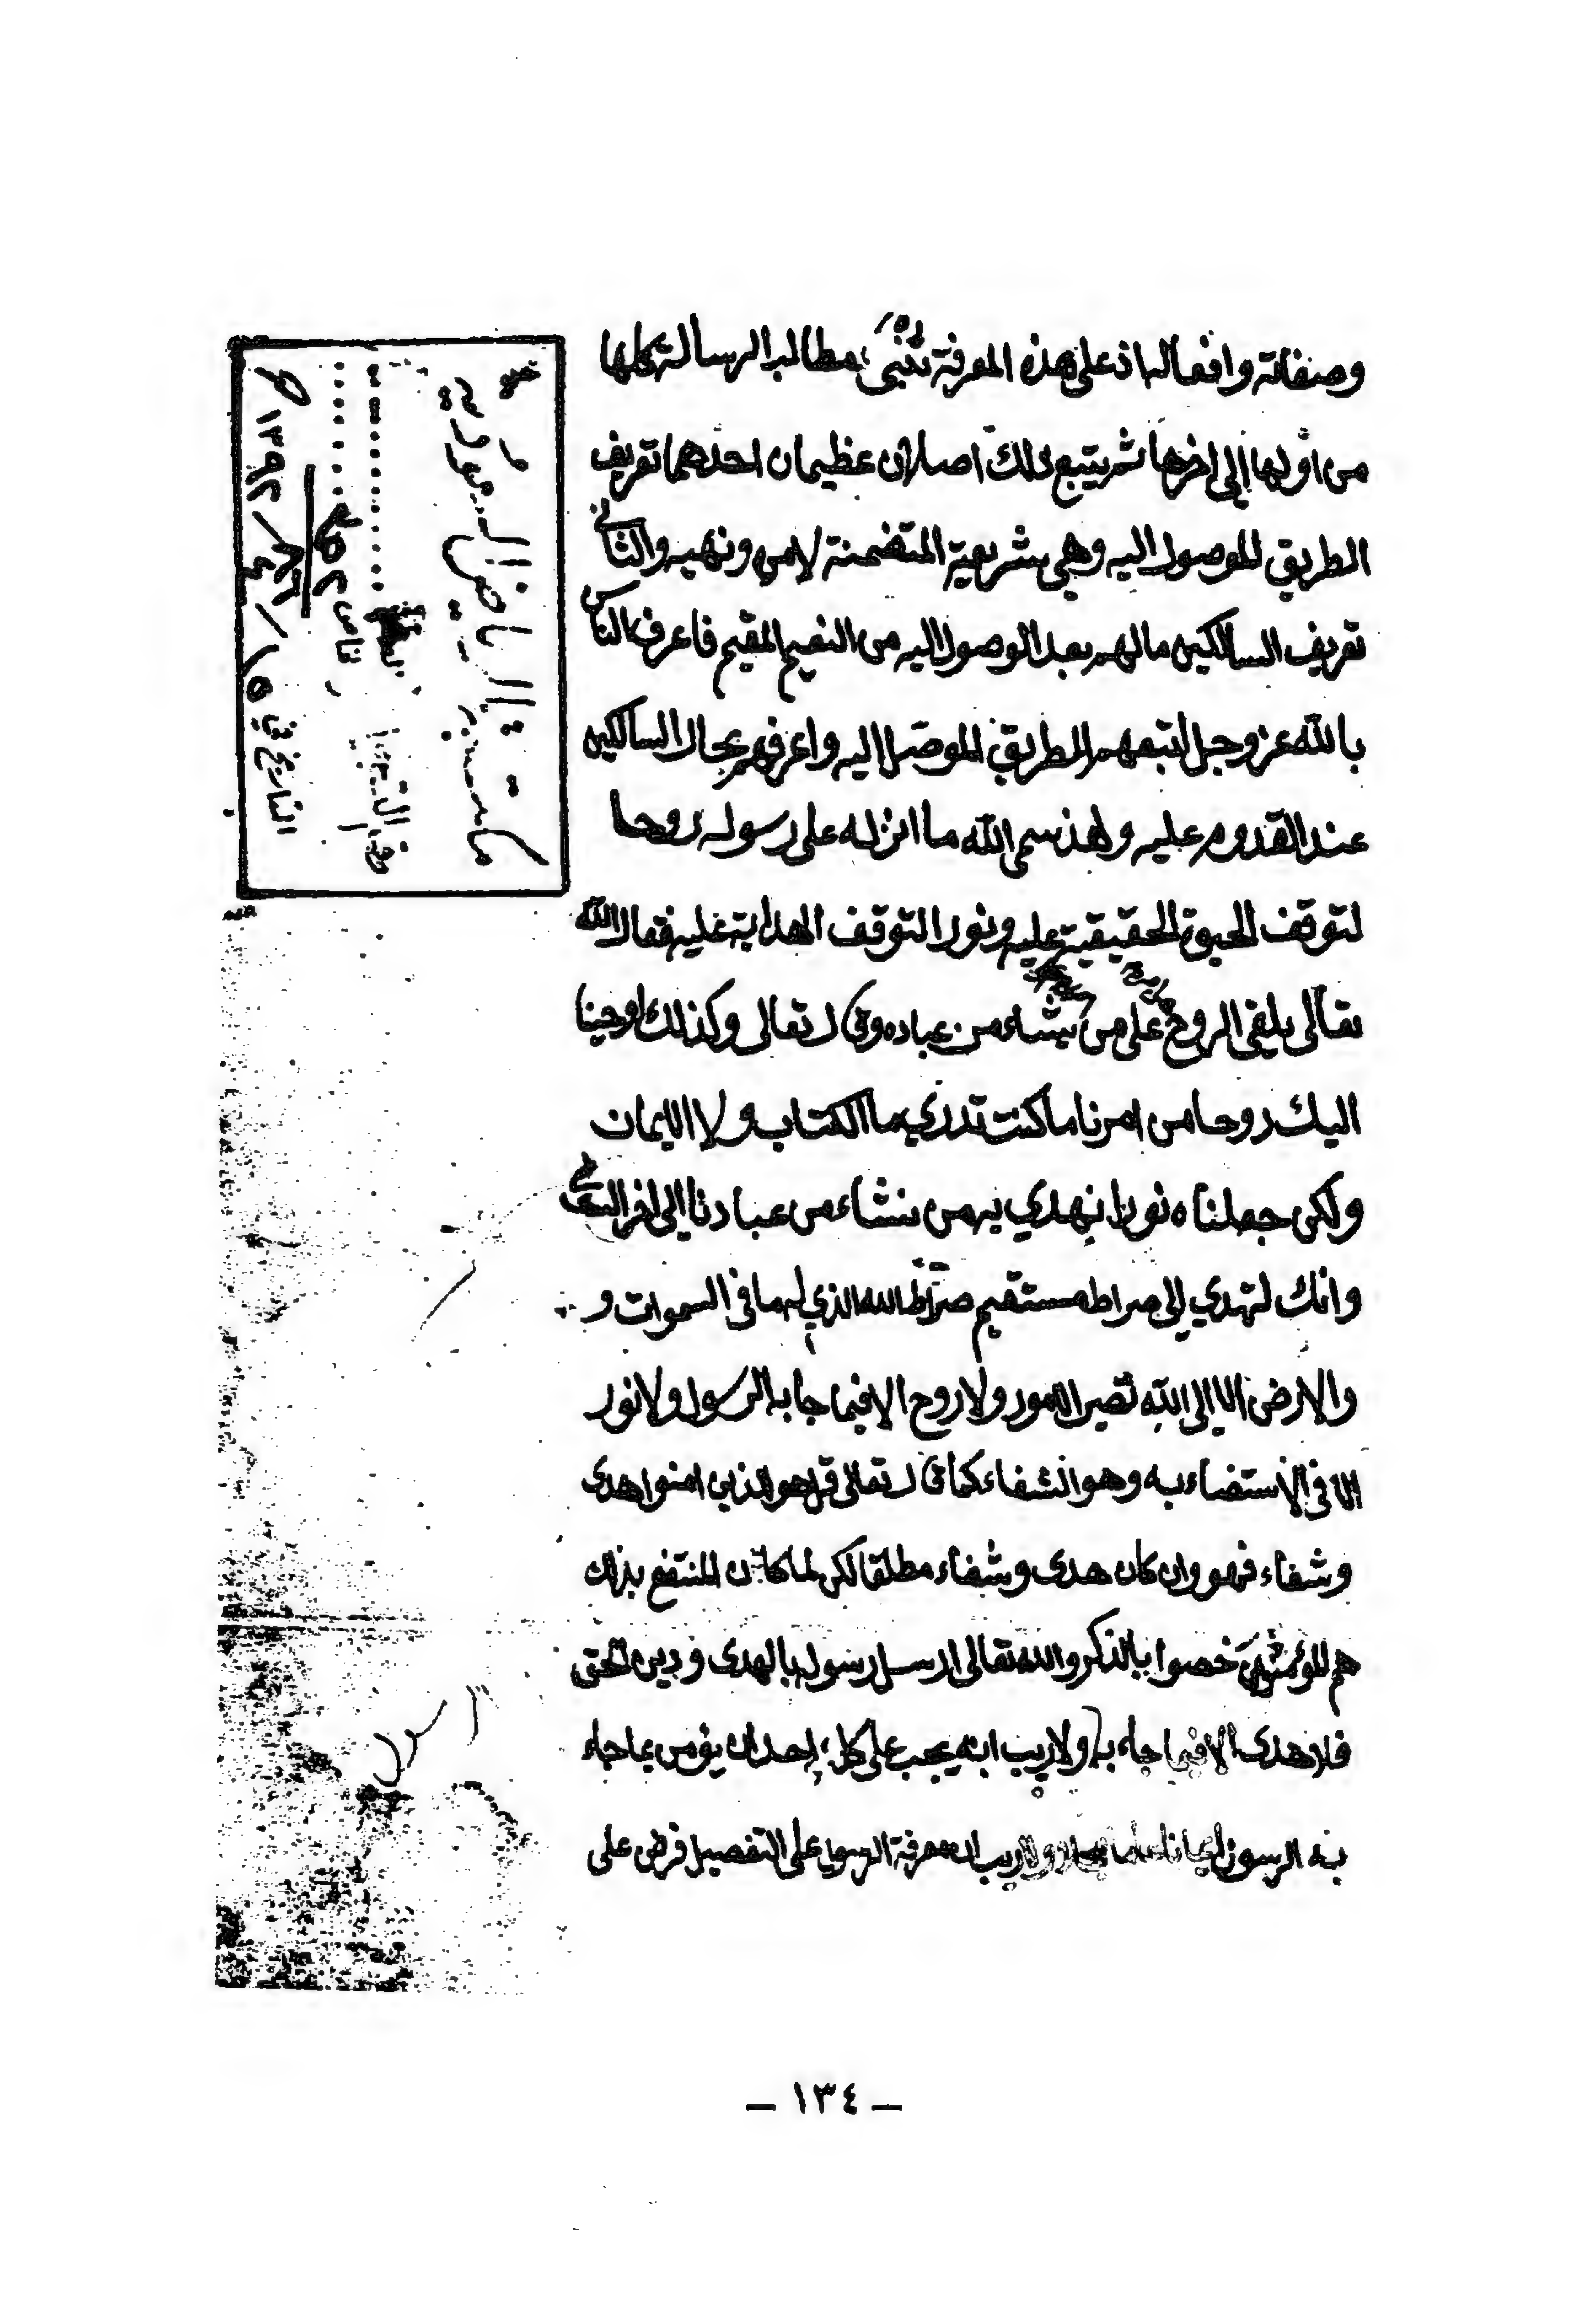 وصفاته وافعاله اذ على هذه المعرفة تنبني مطالب الرسالة كلها
من أولها إلى اخرها ثم يتبع ذلك اصلان عظيمان احدهما تعريف
الطريق الموصول اليه وهي شريعته المتضمنة لامره ونهيه والثاني
تعريف السالكين مالهم بعد الوصول اليه من النعيم المقيم فاعرف الناس
بالله عز وجل اتبعهم للطريق الموصل اليه واعرفهم بحال السالكين
عند القدوم عليه ولهذ سمى الله ما انزله على رسوله روحا
لتوقف الحيوة الحقيقية عليه ونورا لتوقف الهداية عليه فقال الله
تعالى يلقى الروح على من يشاء من عباده وقال تعالى وكذلك اوحينا
اليك روحا من امرنا ما كنت تدري ما الكتاب ولا الايمان
ولكن جعلناه نورا نهدي به من نشاء من عبادنا إلى اخر
وانك لتهدي إلى صراط مستقيم صراط الله الذي له ما في السموات و
والارض الا إلى الله تصير الامور ولا روح الا فيما جا به الرسول ولا نور
الا في الاستضاء به وهو الشفاء كما قال تعالى قل هو للذين امنوا هدى
وشفاء فهو وان كان هدى وشفاء مطلقا لكن لما كان المنتفع بذلك
هم المؤمنين خصوا بالذكر والله تعالى ارسل رسوله بالهدى ودين الحق
فلا هدى الا فيما جاء به ولا ريب انه يجب على كل احد ان يؤمن بما جاء
به الرسول ايمانا ولا ريب ان معرفة الرسول على التفصيل فرض على
مكتبة الرياض السعودية
رقم التسجيل
التاريخ في ١٥/ /١٣٩٢
— ١٣٤ —